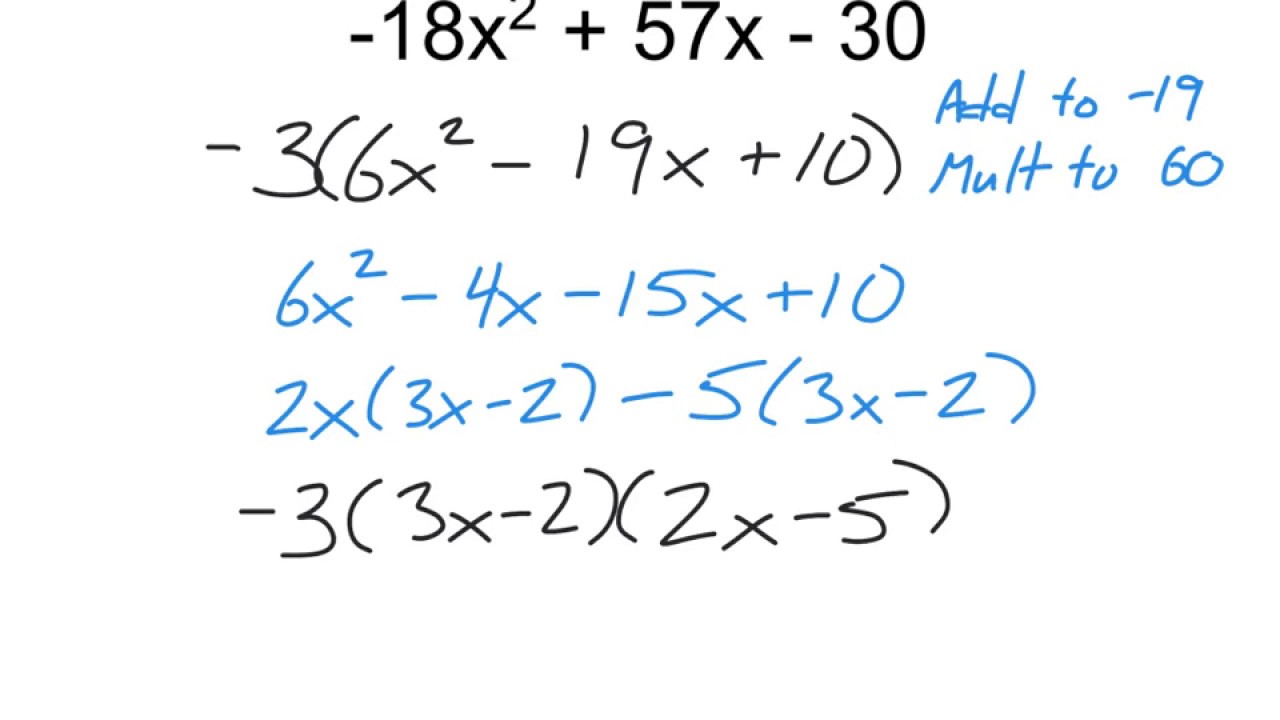 -18x² + 57x - 30
-3(6x² - 19x + 10)
Add to -19
Mult to 60
6x² - 4x - 15x + 10
2x(3x-2) - 5(3x-2)
-3(3x-2)(2x-5)